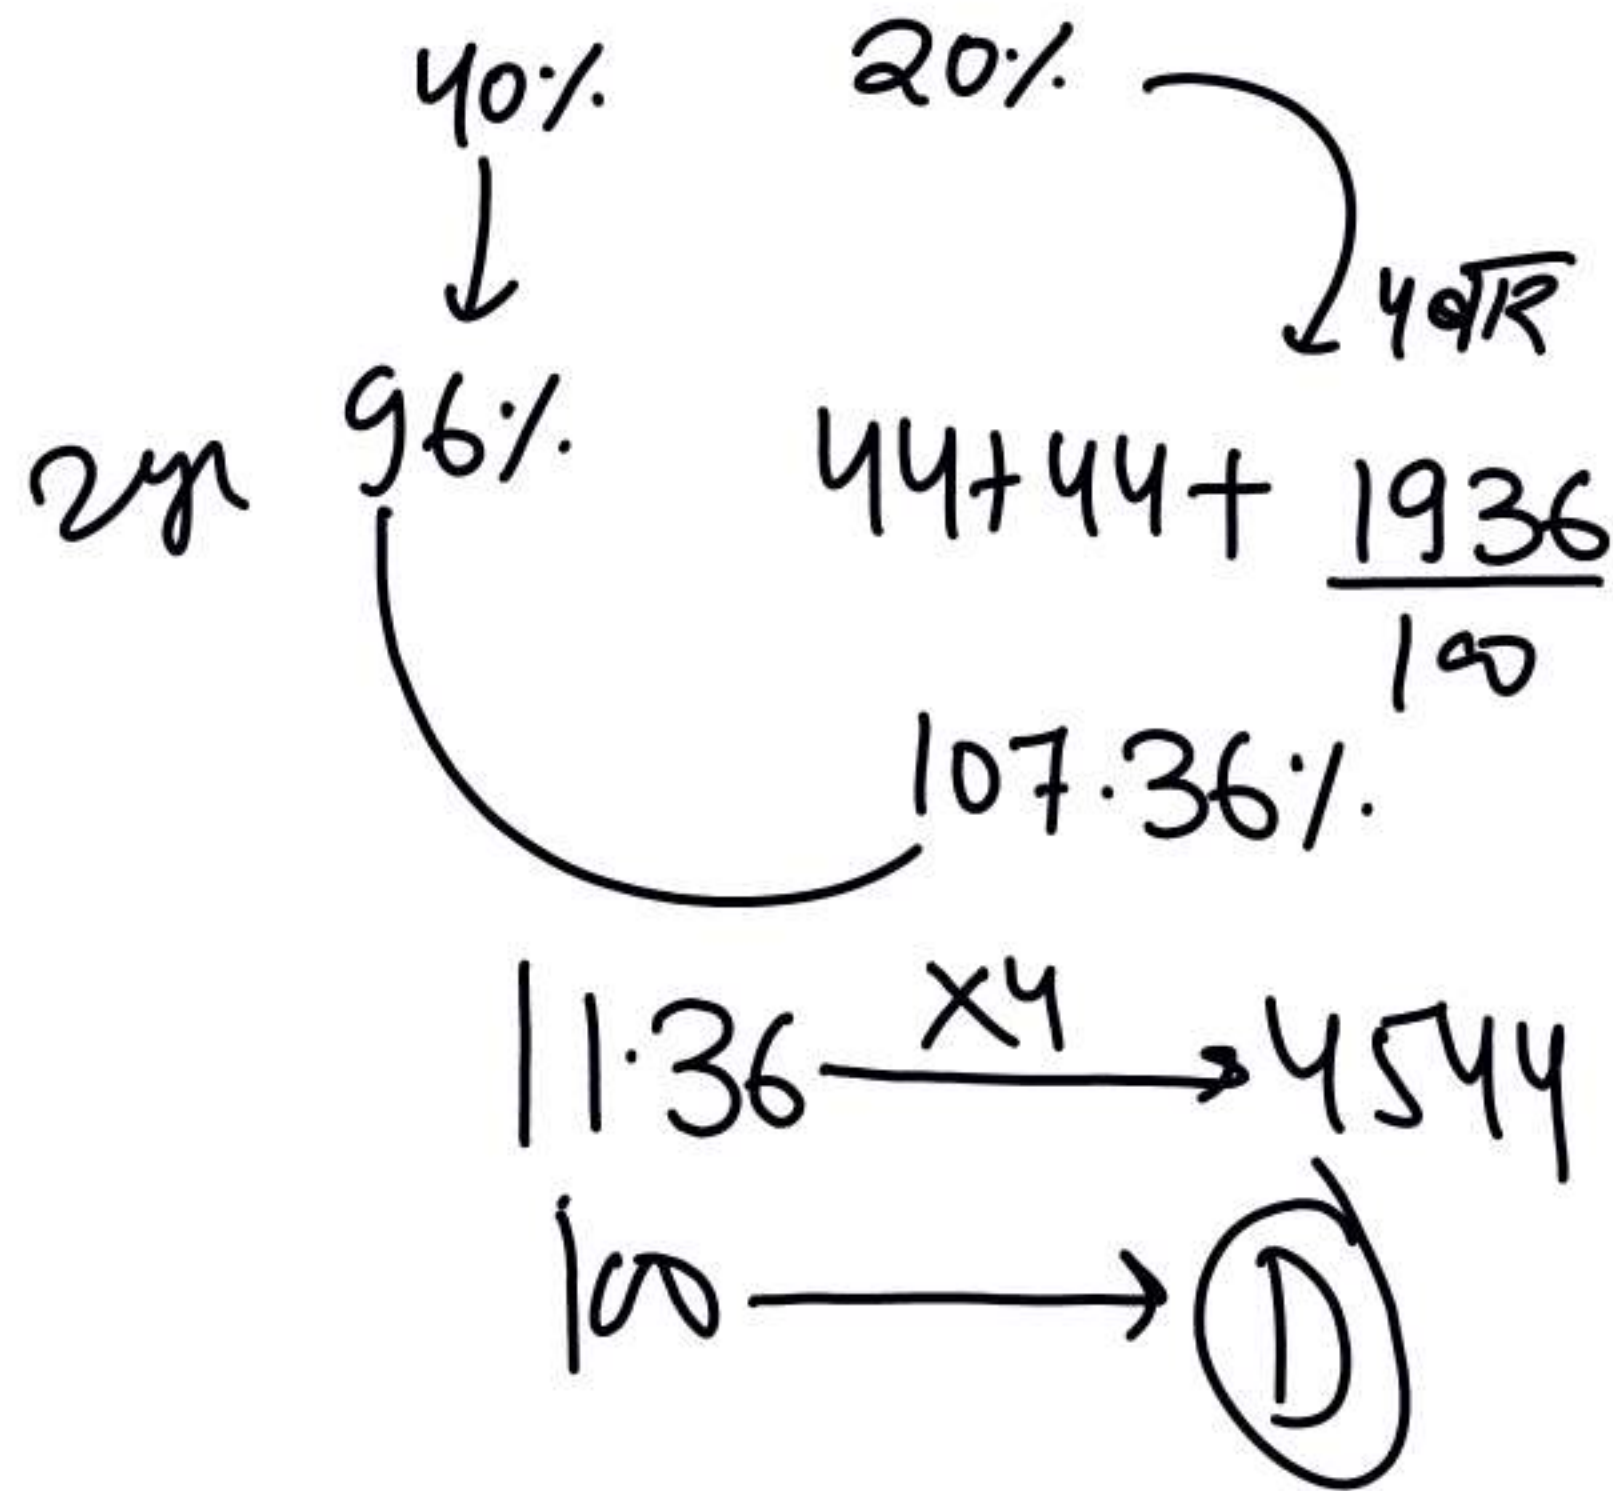 40% 20%
4 बार
2yr 96% 44+44+ 1936/100
107.36%
11.36 ×4 → 4544
100 → D